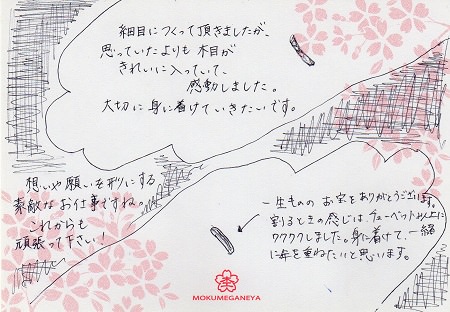 細目につくって頂きましたが、
思っていたよりも木目が
きれいに入っていて、
感動しました。
大切に身に着けていきたいです。
想いや願いを形にする
素敵なお仕事ですね。
これからも
頑張って下さい!
一生ものの お宝をありがとうございます。
割るときの感じは、チューペット以上に
ワクワクしました。身に着けて、一緒
に年を重ねたいと思います。
MOKUMEGANEYA